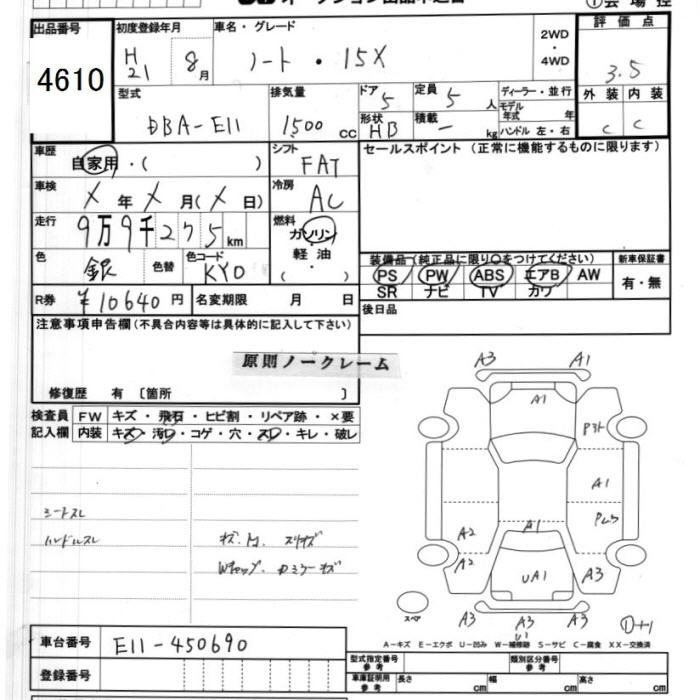 オークション出品申込書 ①会場控
出品番号 初度登録年月 車名・グレード 2WD・4WD 評価点
4610 H21 8月 ノート・15X 3.5
型式 排気量 ドア 5 定員 5人 ディーラー・並行 外装 内装
DBA-E11 1500cc 形状 HB 積載 - kg モデル年式 年 C C
ハンドル 左・右
車歴 自家用・( ) シフト FAT セールスポイント(正常に機能するものに限ります)
車検 X年X月(X日) 冷房 AC
走行 9万9千275km 燃料 ガソリン・軽油・( )
色 銀 色替 色コード KY0 装備品(純正品に限り○をつけてください) 新車保証書
PS PW ABS エアB AW 有・無
SR ナビ TV カワ
R券 ¥10640円 名変期限 月 日 後日品
注意事項申告欄(不具合内容等は具体的に記入して下さい)
原則ノークレーム
修復歴 有〔箇所 〕
検査員 FW キズ・飛石・ヒビ割・リペア跡・×要
記入欄 内装 キズ・汚れ・コゲ・穴・スレ・キレ・破レ
シートスレ
ハンドルスレ
Wキャップ、
A3 A1
A1
A1
A2 A1
A2 UA1 A3
スペア A3 A3 A3 ①+1
A-キズ E-エクボ U-凹み W-補修跡 S-サビ C-腐食 XX-交換済
車台番号 E11-450690
登録番号
型式指定番号 参考 類別区分番号 参考
車庫証明用 参考 長さ cm 幅 cm 高さ cm